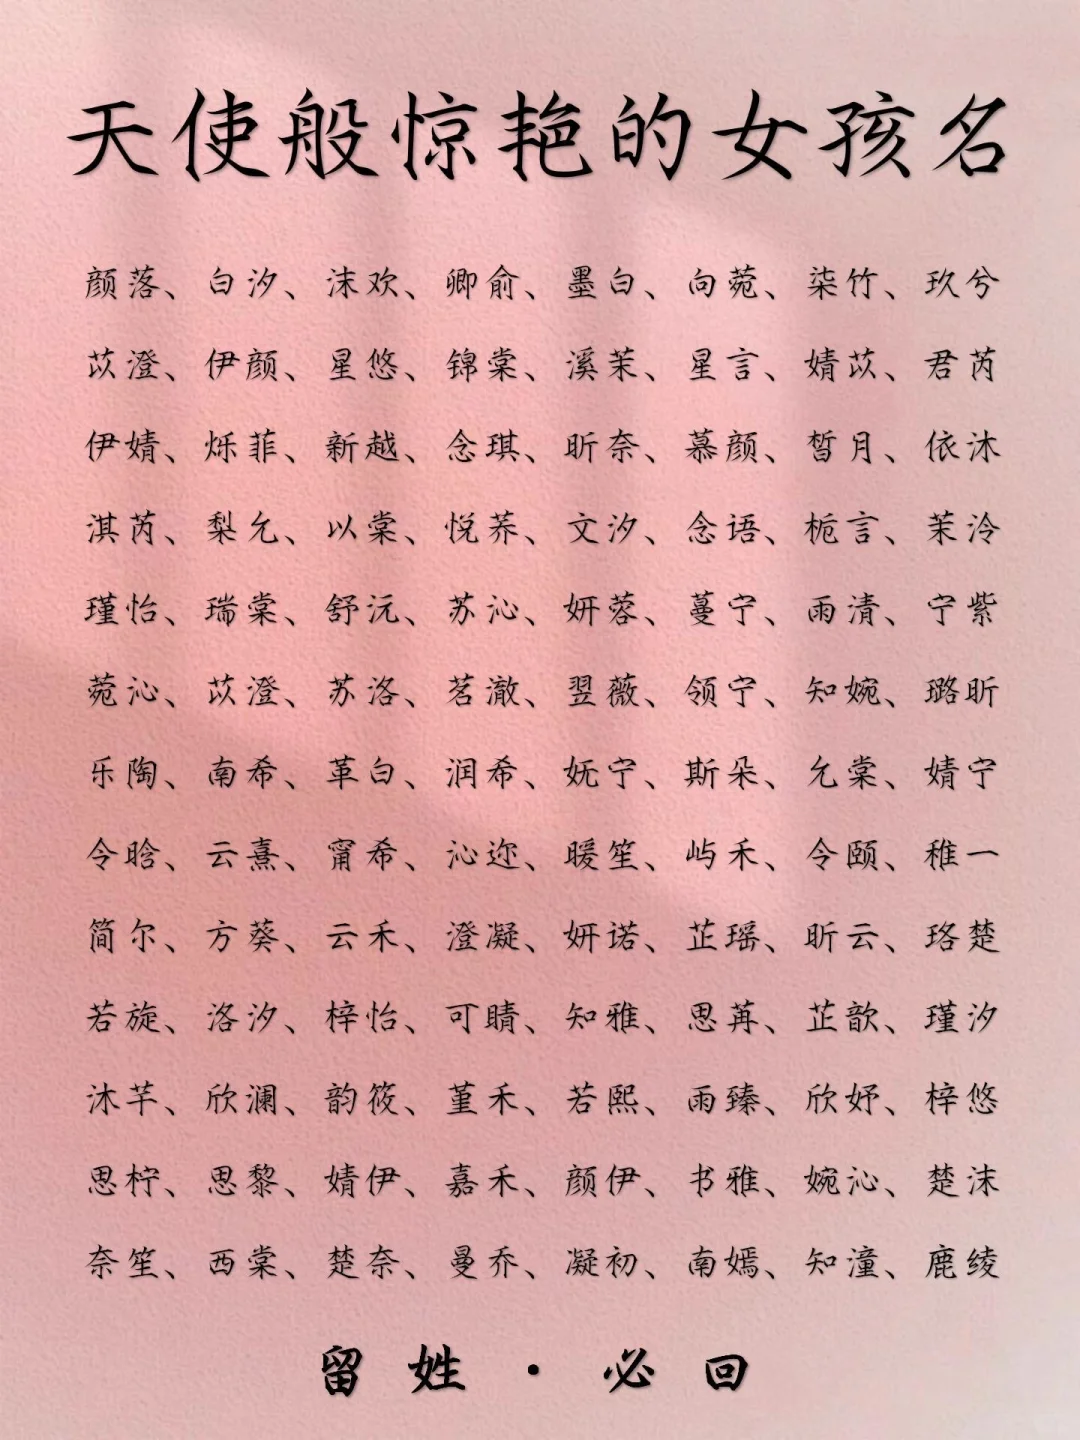 天使般惊艳的女孩名
颜落、白汐、沫欢、卿俞、墨白、向菀、柒竹、玖兮
苡澄、伊颜、星悠、锦棠、溪茉、星言、婧苡、君芮
伊婧、烁菲、新越、念琪、昕奈、慕颜、皙月、依沐
淇芮、梨允、以棠、悦荞、文汐、念语、栀言、茉泠
瑾怡、瑞棠、舒沅、苏沁、妍蓉、蔓宁、雨清、宁紫
菀沁、苡澄、苏洛、茗澈、翌薇、领宁、知婉、璐昕
乐陶、南希、革白、润希、妩宁、斯朵、允棠、婧宁
令晗、云熹、甯希、沁迩、暖笙、屿禾、令颐、稚一
简尔、方葵、云禾、澄凝、妍诺、芷瑶、昕云、珞楚
若旋、洛汐、梓怡、可晴、知雅、思苒、芷歆、瑾汐
沐芊、欣澜、韵筱、堇禾、若熙、雨臻、欣妤、梓悠
思柠、思黎、婧伊、嘉禾、颜伊、书雅、婉沁、楚沫
奈笙、西棠、楚奈、曼乔、凝初、南嫣、知潼、鹿绫
留姓·必回